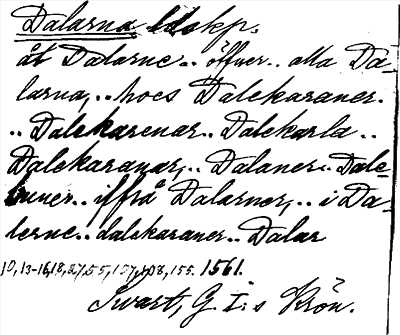 Dalarna ldskp.
åt Dalarne.. öffuer.. alla Da-
larna,.. hoes Dalekaraner.
.. Dalekarenar.. Dalekarla..
Dalekaranar,.. Dalaner.. Dale-
.. iffrå Dalarner,.. i Da-
lerne.. dalekaraner.. Dalar
10, 13-16, 18, 27, 55, 137, 138, 155. 1561.
Swart, G. I:s Krön.